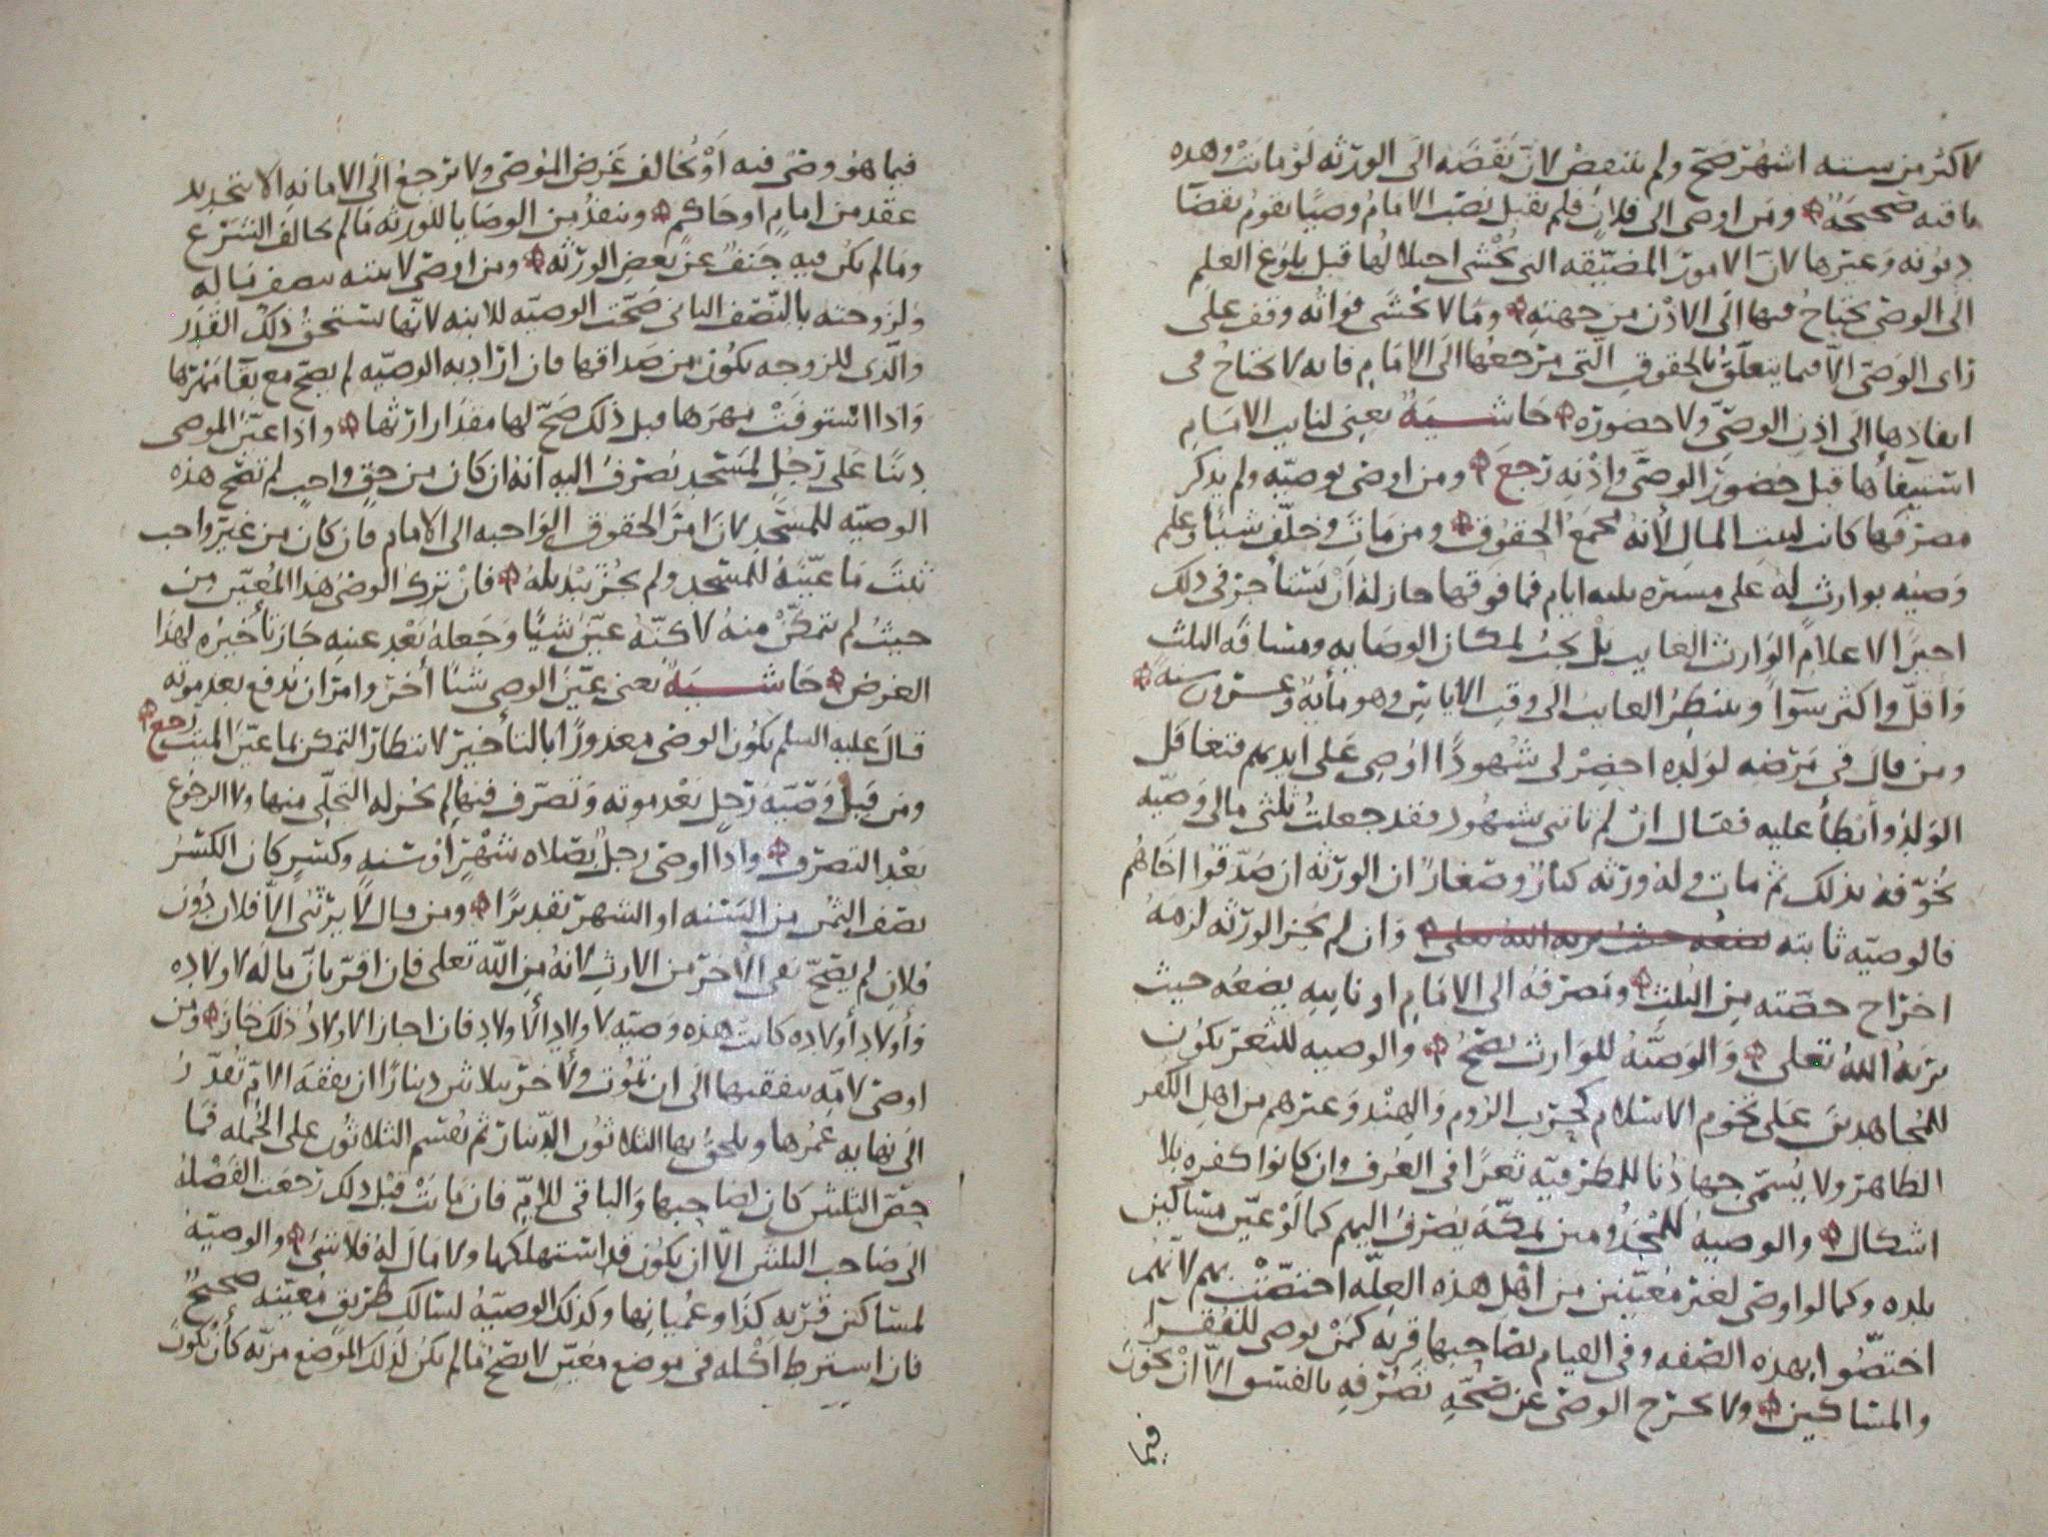 لاكثر من ستة اشهر صح ولم ينتقض لان نقضه الى الورثه لو ماتت وهذه
ما فيه صحيحة ومن اوصى الى فلان فلم يقبل نصب الامام وصيا يقوم بقضا
ديونه وغيرها لان الامور المضيقه التي يخشى اختلالها قبل بلوغ العلم
الى الوصي يحتاج فيها الى الاذن من جهته وما لا يخشى فواته وقف على
راى الوصي الا فيما يتعلق بالحقوق التي مرجعها الى الامام فانه لا يحتاج في
انفاذها الى اذن الوصي ولا حضوره حاشية يعني لنايب الامام
استيفاؤها قبل حضور الوصي واذنه رجع ومن اوصى بوصيه ولم يذكر
مصرفها كانت لبيت المال لانه مجمع الحقوق ومن مات وخلف شيئا وعلم
وصيه بوارث له على مسيره ثلثه ايام فما فوقها جاز له ان يستأجر في ذلك
اجيرا لاعلام الوارث الغايب بل يجب لمكان الوصايه ومسافه الثلث
واقل واكثر سوآ وينتظر الغايب الى وقت الاياس وهو مأيه وعشرون سنه
ومن قال في مرضه لولده احضر لي شهودا اوصي على ايديهم فتغافل
الولد وأبطأ عليه فقال ان لم تاتني بشهود فقد جعلت ثلثي مالي وصيه
يخوفه بذلك ثم مات وله ورثه كبار وصغار ان الورثه ان صدقوا اخاهم
فالوصيه ثابته يضعه حيث يريه الله تعلى وان لم يجز الورثه لزمه
اخراج حصته من الثلث ومصرفه الى الامام او نايبه يضعه حيث
يريه الله تعلى والوصيه للوارث تصح والوصيه للثغر يكون
للمجاهدين على تخوم الاسلام كحرب الروم والهند وغيرهم من اهل الكفر
الظاهر ولا يسمى جهادنا للمطرفيه ثغرا في العرف وان كانوا كفره بلا
اشكال والوصية للمجذومين بمكة يصرف اليهم كما لو عين مساكين
بلده وكما لو اوصى لغير معينين من اهل هذه العله اختصت بهم لانهم
اختصوا بهذه الصفه وفي القيام بصاحبها قربه كمن يوصي للفقرا
والمساكين ولا يخرج الوصي عن صحة تصرفه بالفسق الا ان يخون
فيما
فيما هو وصي فيه او يخالف غرض الموصي ولا ترجع الى الامانه الا بتجديد
عقد من امام او حاكم وينفذ من الوصايا للورثه ما لم يخالف الشرع
وما لم يكن فيه جنف عن بعض الورثه ومن اوصى لابنته بنصف ماله
ولزوجته بالنصف الثاني صحت الوصيه للابنه لانها تستحق ذلك القدر
والذي للزوجه يكون من صداقها فان اراد به الوصيه لم يصح مع بقا مهرها
واذا استوفت مهرها قبل ذلك صح لها مقدار ارثها واذا عين الموصي
دينا على رجل لمسجد يصرف اليه انه ان كان من حق واجب لم تصح هذه
الوصيه للمسجد لان امر الحقوق الواجبه الى الامام فان كان من غير واجب
ثبت ما عينه للمسجد ولم يجز تبديله فان ترك الوصي هذا المعين من
حيث لم يتمكن منه لاكنه عين شيئا وجعله بعد عينه جاز تأخيره لهذا
الغرض حاشية يعني عين الوصي شيئا أخر وامر ان يدفع بعد موته
قال عليه السلم يكون الوصي معذورا بالتأخير لانتظار التمكن بما عين الميت رجع
ومن قبل وصية رجل بعد موته وتصرف فيها لم يجز له التخلي منها ولا الرجوع
بعد التصرف واذا اوصى رجل بصلاه شهر او سنه وكسر كان الكسر
نصف الثمن من السنه او الشهر تقديرا ومن قال لا يرثني الا فلان دون
فلان لم يصح نفي الأخر من الارث لانه من الله تعلى فان اقر بان ماله لاولاده
وأولاد أولاده كانت هذه وصيه لاولاد الأولاد فان اجاز الاولاد ذلك جاز ومن
اوصى لامه بنفقتها الى ان تموت ولأخر بثلاثين دينارا ان نفقه الام تقدر
الى نهايه عمرها ويلحق بها الثلاثون الدينار ثم يقسم الثلاثون على الجمله فما
حص الثلثين كان لصاحبها والباقي للام فان ماتت قبل ذلك رجعت الفضلة
الى صاحب الثلثين الا ان يكون قد استهلكها ولا مال له فلا شيء والوصيه
لمساكين قريه كذا وعميانها وكذلك الوصية لسالك طريق معينه صحيح
فان اشترط أكله في موضع معين لا يصح ما لم يكن لذلك الموضع مزيه كأن يكون